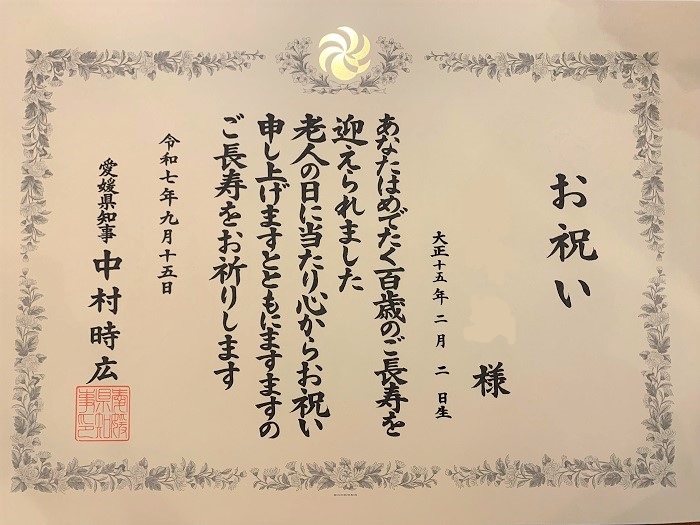 お祝い
様
大正十五年二月二日生
あなたはめでたく百歳のご長寿を
迎えられました
老人の日に当たり心からお祝い
申し上げますとともにますますの
ご長寿をお祈りします
令和七年九月十五日
愛媛県知事 中村時広
愛媛県知事印